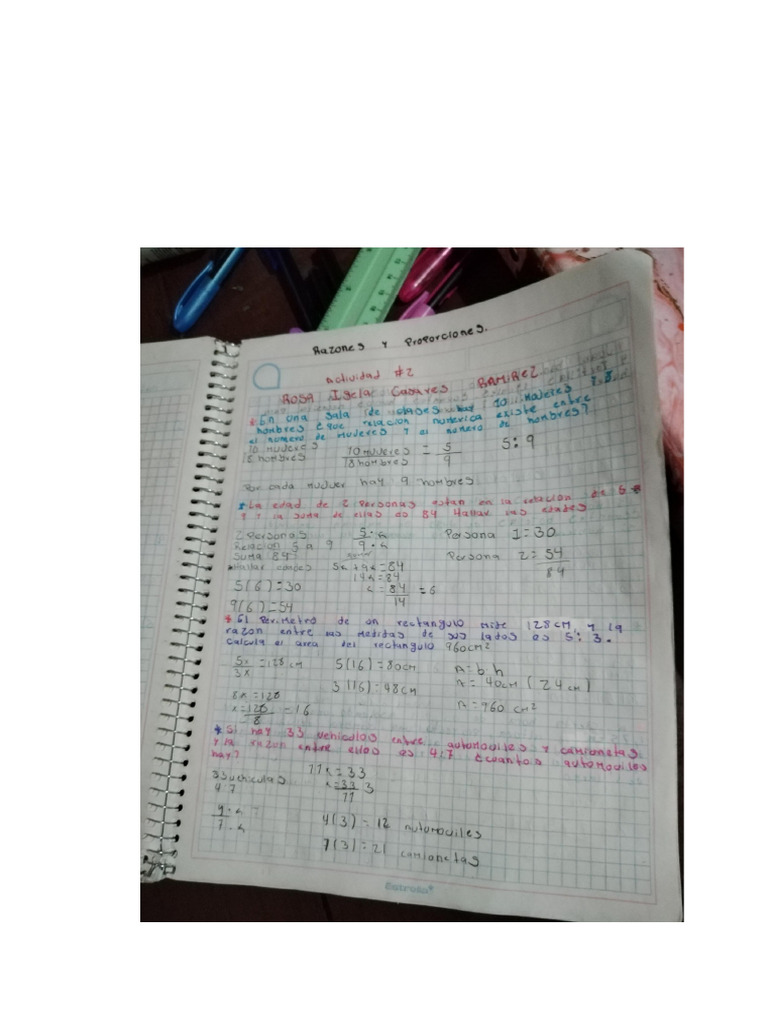 Razones y Proporciones.
Actividad #2
ROSA Isela Casares RAMIREZ
* En una sala de clases hay 10 mujeres y 18
hombres ¿que relacion numerica existe entre
el numero de mujeres y el numero de hombres?
10 mujeres
18 hombres
10 mujeres / 18 hombres = 5 / 9
5:9
Por cada mujer hay 9 hombres
* La edad de 2 Personas estan en la relacion de 5 a
9 y la suma de ellas es 84 Hallar las edades
2 Personas
Relacion 5 a 9
Suma 84
Hallar edades
5·k
9·k
5k+9k=84
14k=84
k=84/14=6
Persona 1=30
Persona 2=54
84
5(6)=30
9(6)=54
* El Perimetro de un rectangulo mide 128cm y la
razon entre las medidas de sus lados es 5:3.
Calcula el area del rectangulo 960cm²
5x/3x=128cm
8x=128
x=128/8=16
5(16)=80cm
3(16)=48cm
A=b·h
A=40cm(24cm)
A=960 cm²
* Si hay 33 vehiculos entre automoviles y camionetas
y la razon entre ellos es 4:7 ¿cuantos automoviles
hay?
33 vehiculas
4:7
4·k
7·k
11k=33
k=33/11 3
4(3)=12 automoviles
7(3)=21 camionetas
Estrella